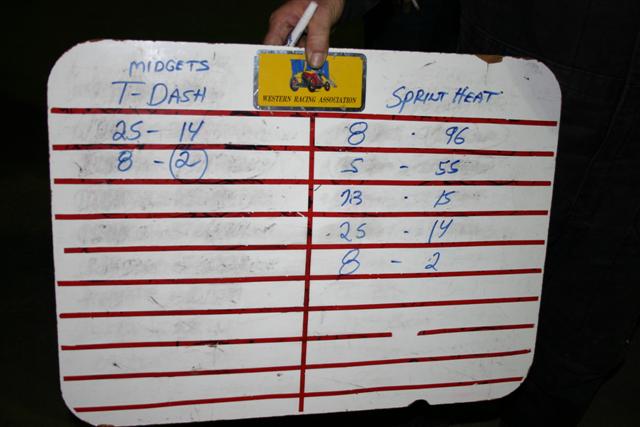 MIDGETS
T-DASH
25 - 14
8 - 2
WESTERN RACING ASSOCIATION
SPRINT HEAT
8 - 96
5 - 55
73 - 15
25 - 14
8 - 2